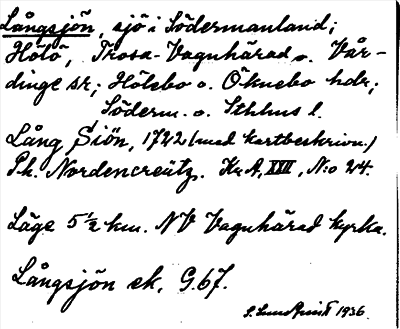 Långsjön, sjö i Södermanland;
Hölö, Trosa-Vagnhärad o. Vår-
dinge sr; Hölebo o. Öknebo hdr;
Söderm. o. Sthlms l.
Lång Siön, 1722 (med kartbeskrivn.)
Ph. Nordencreutz. Kr. A, XXII, N:o 24.
Läge 5½ km. NV Vagnhärad kyrka.
Långsjön ek, G.67.
S. Lundqvist 1936.